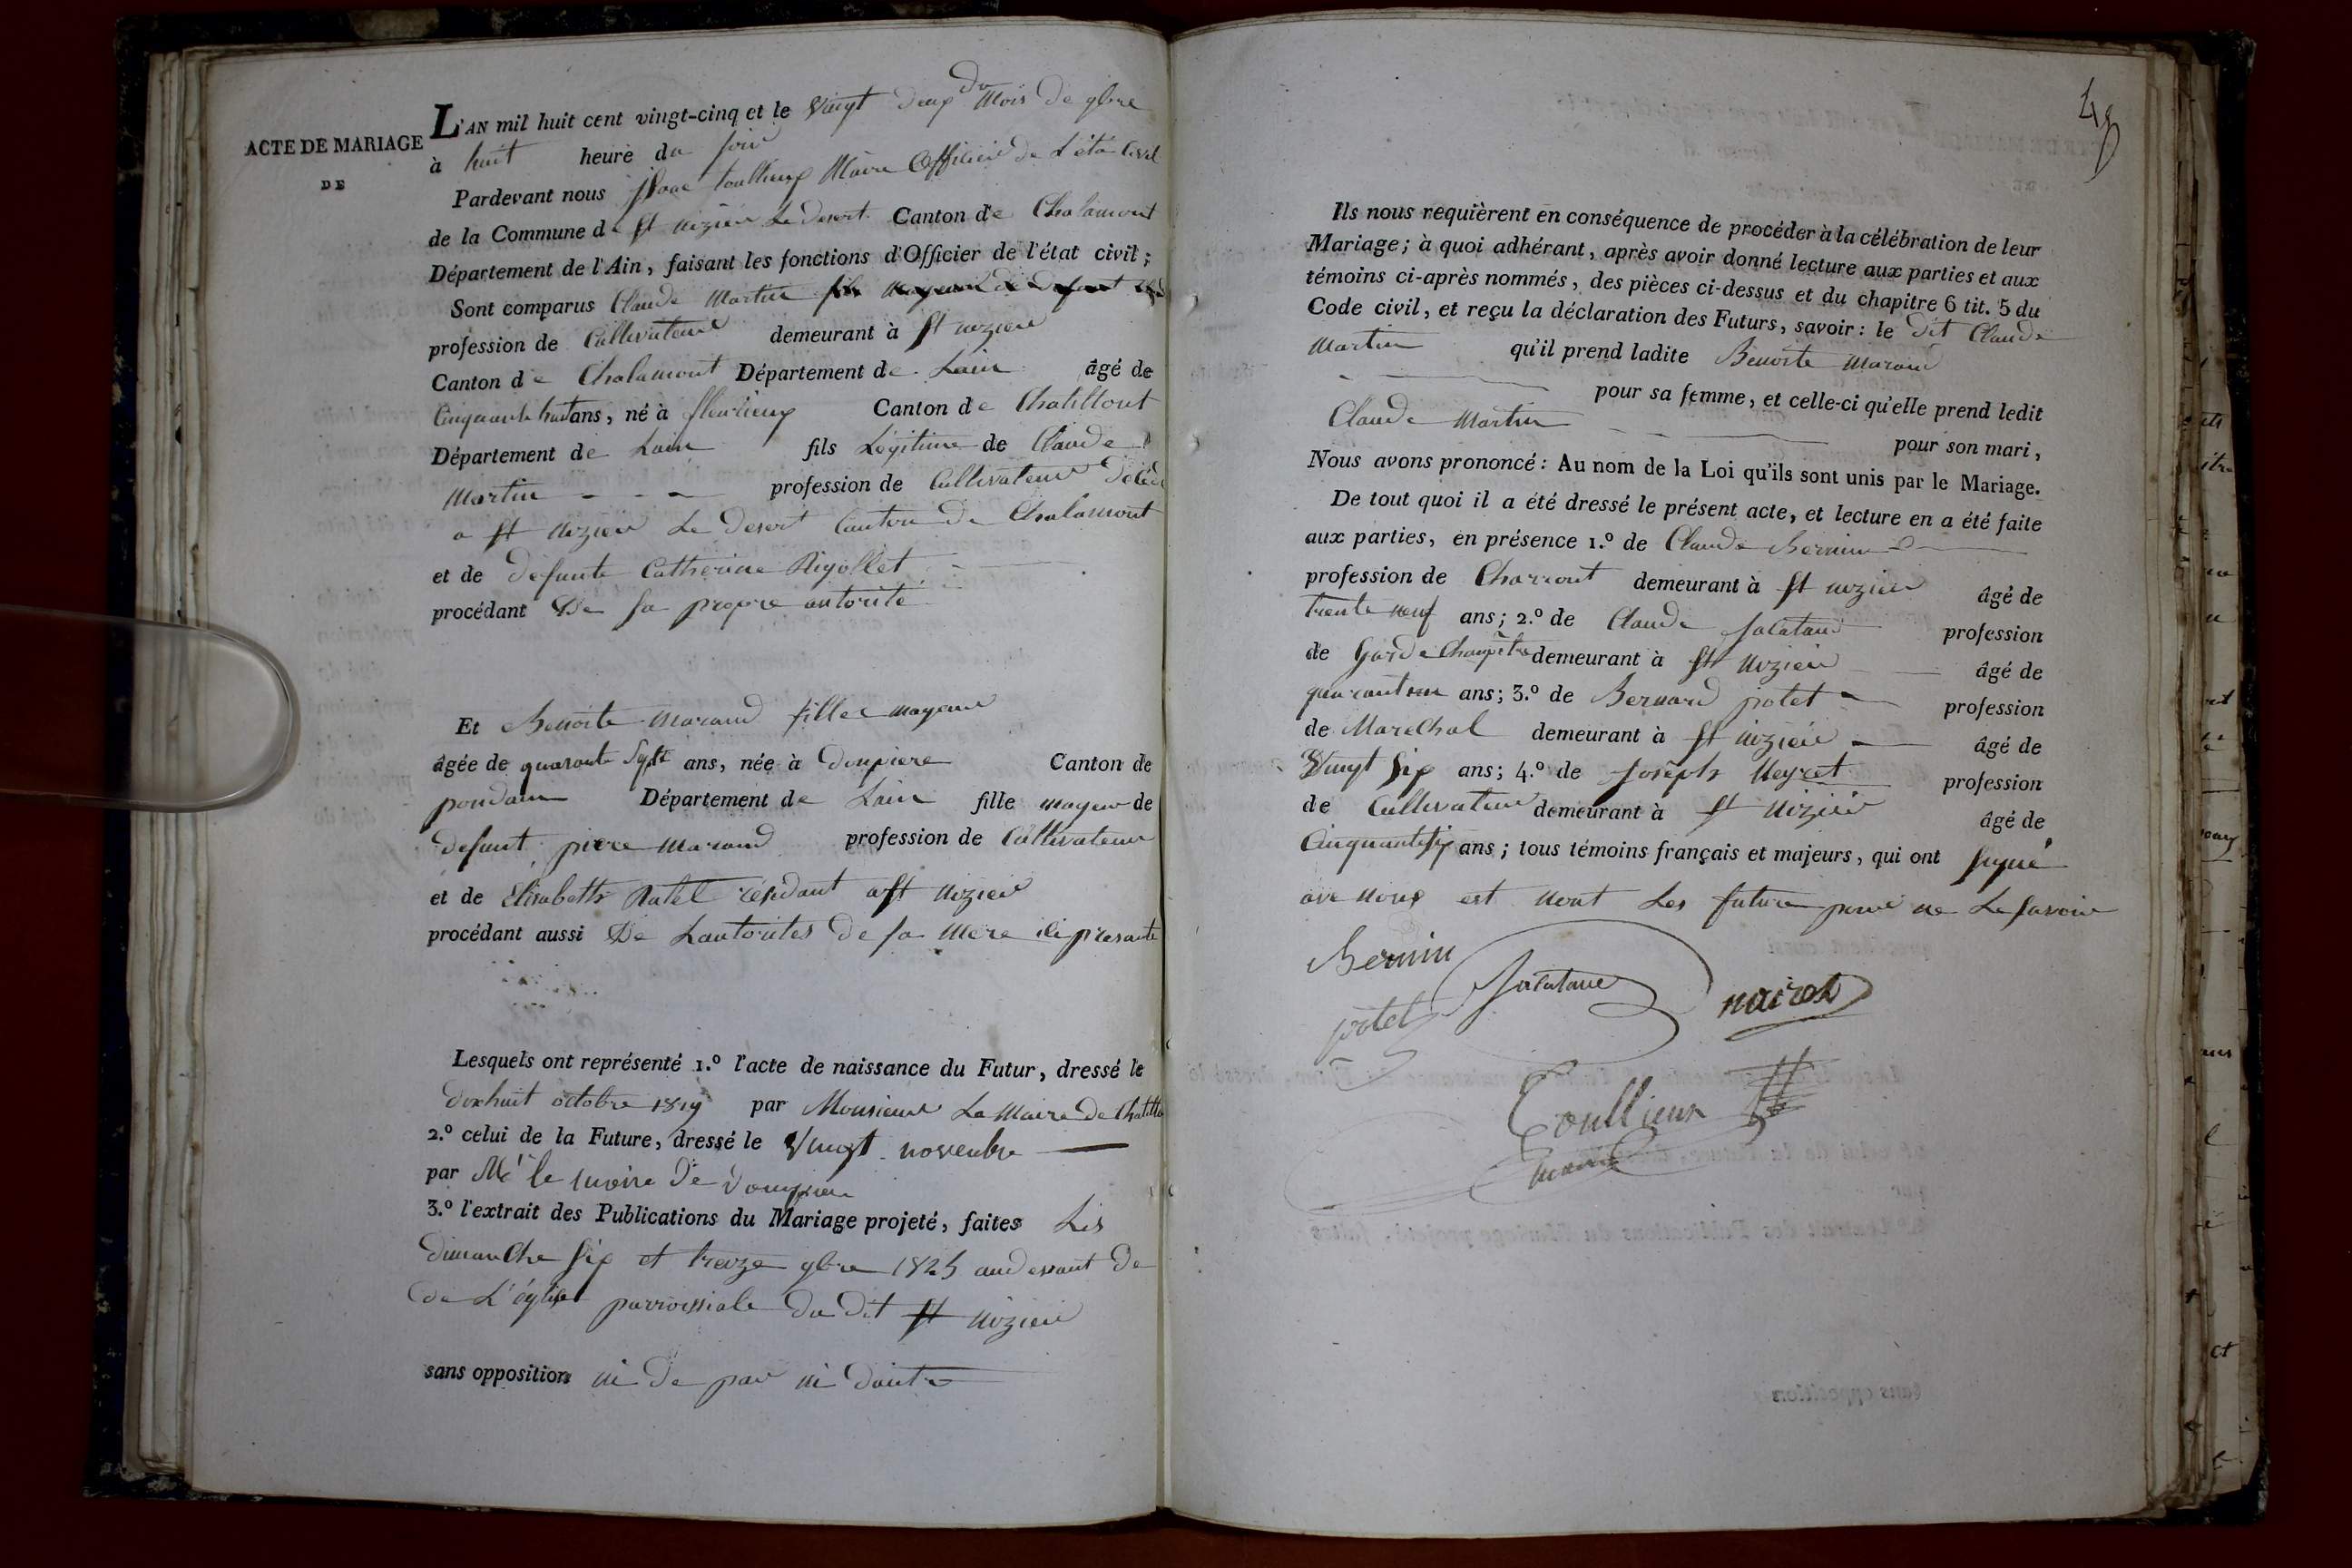 ACTE DE MARIAGE
DE
L'AN mil huit cent vingt-cinq et le Vingt deux du Mois de 9bre
à huit heure du soir
Pardevant nous isaac toullieux Maire Officier de L'état Civil
de la Commune d St nizier Le desert Canton de Chalamont
Département de l'Ain, faisant les fonctions d'Officier de l'état civil;
Sont comparus Claude Martin fils mayeur de defunt
profession de Cultivateur demeurant à St nizier
Canton de Chalamont Département de Lain âgé de
Cinquante huit ans, né à fleurieux Canton de Chatillont
Département de Lain fils Légitime de Claude
Martin profession de Cultivateur décéd
a St nizier Le desert Canton de Chalamont
et de defunte Catherine Rigollet
procédant De sa propre autorité
Et Benoite Marand fille mayeur
âgée de quarante Sept ans, née à donpiere Canton de
pondain Département de Lain fille mayeur de
defunt piere Marand profession de Cultivateur
et de Elisabeth Ratel résidant a St nizier
procédant aussi De Lautorites de sa Mere ici presante
Lesquels ont représenté 1.º l'acte de naissance du Futur, dressé le
dixhuit octobre 1819 par Monsieur Le Maire de Chatillo
2.º celui de la Future, dressé le Vingt novenbre
par Mr le maire de Dompierre
3.º l'extrait des Publications du Mariage projeté, faites Les
dimanche Six et treize 9bre 1825 audevant de
de L'église parroissiale du dit St nizier
sans opposition ni de par ni dautre
49
Ils nous requièrent en conséquence de procéder à la célébration de leur
Mariage; à quoi adhérant, après avoir donné lecture aux parties et aux
témoins ci-après nommés, des pièces ci-dessus et du chapitre 6 tit. 5 du
Code civil, et reçu la déclaration des Futurs, savoir: le dit Claude
Martin qu'il prend ladite Benoite Marand
pour sa femme, et celle-ci qu'elle prend ledit
Claude Martin
pour son mari,
Nous avons prononcé: Au nom de la Loi qu'ils sont unis par le Mariage.
De tout quoi il a été dressé le présent acte, et lecture en a été faite
aux parties, en présence 1.º de Claude Bernin
profession de Charront demeurant à St nizier âgé de
trente neuf ans; 2.º de Claude Jacataud profession
de Garde Champêtre demeurant à St Nizier âgé de
quarant un ans; 3.º de Bernard potet profession
de Marechal demeurant à St nizier âgé de
Vingt Six ans; 4.º de Joseph Neyret profession
de Cultivateur demeurant à St nizier âgé de
Cinquante six ans; tous témoins français et majeurs, qui ont signé
ave nous est nont Les future pour ne Le savoir
Bernin
Jacataud
potet
nairet
Toullieux
maire